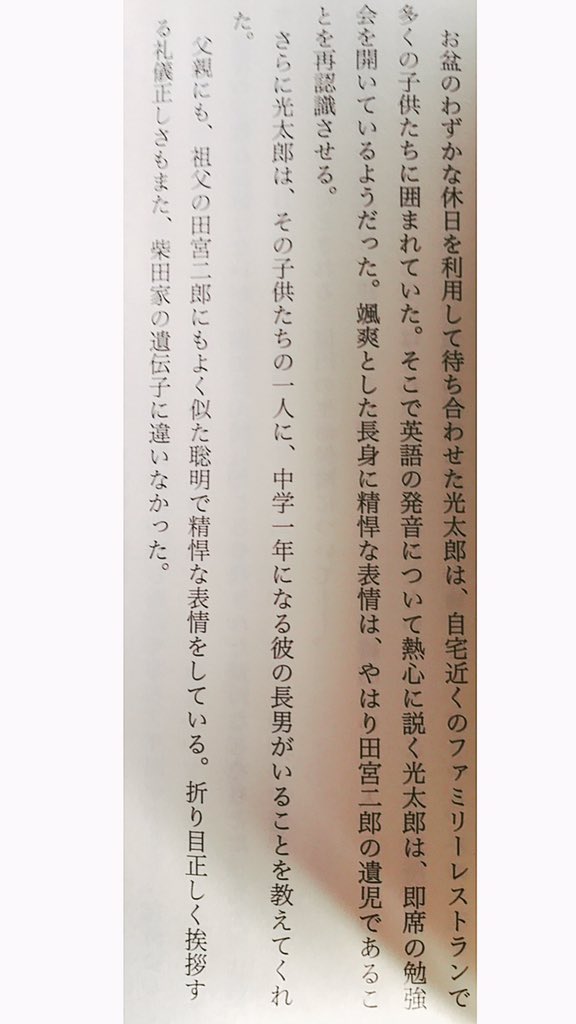 お盆のわずかな休日を利用して待ち合わせた光太郎は、自宅近くのファミリーレストランで
多くの子供たちに囲まれていた。そこで英語の発音について熱心に説く光太郎は、即席の勉強
会を開いているようだった。颯爽とした長身に精悍な表情は、やはり田宮二郎の遺児であるこ
とを再認識させる。
さらに光太郎は、その子供たちの一人に、中学一年になる彼の長男がいることを教えてくれ
た。
父親にも、祖父の田宮二郎にもよく似た聡明で精悍な表情をしている。折り目正しく挨拶す
る礼儀正しさもまた、柴田家の遺伝子に違いなかった。